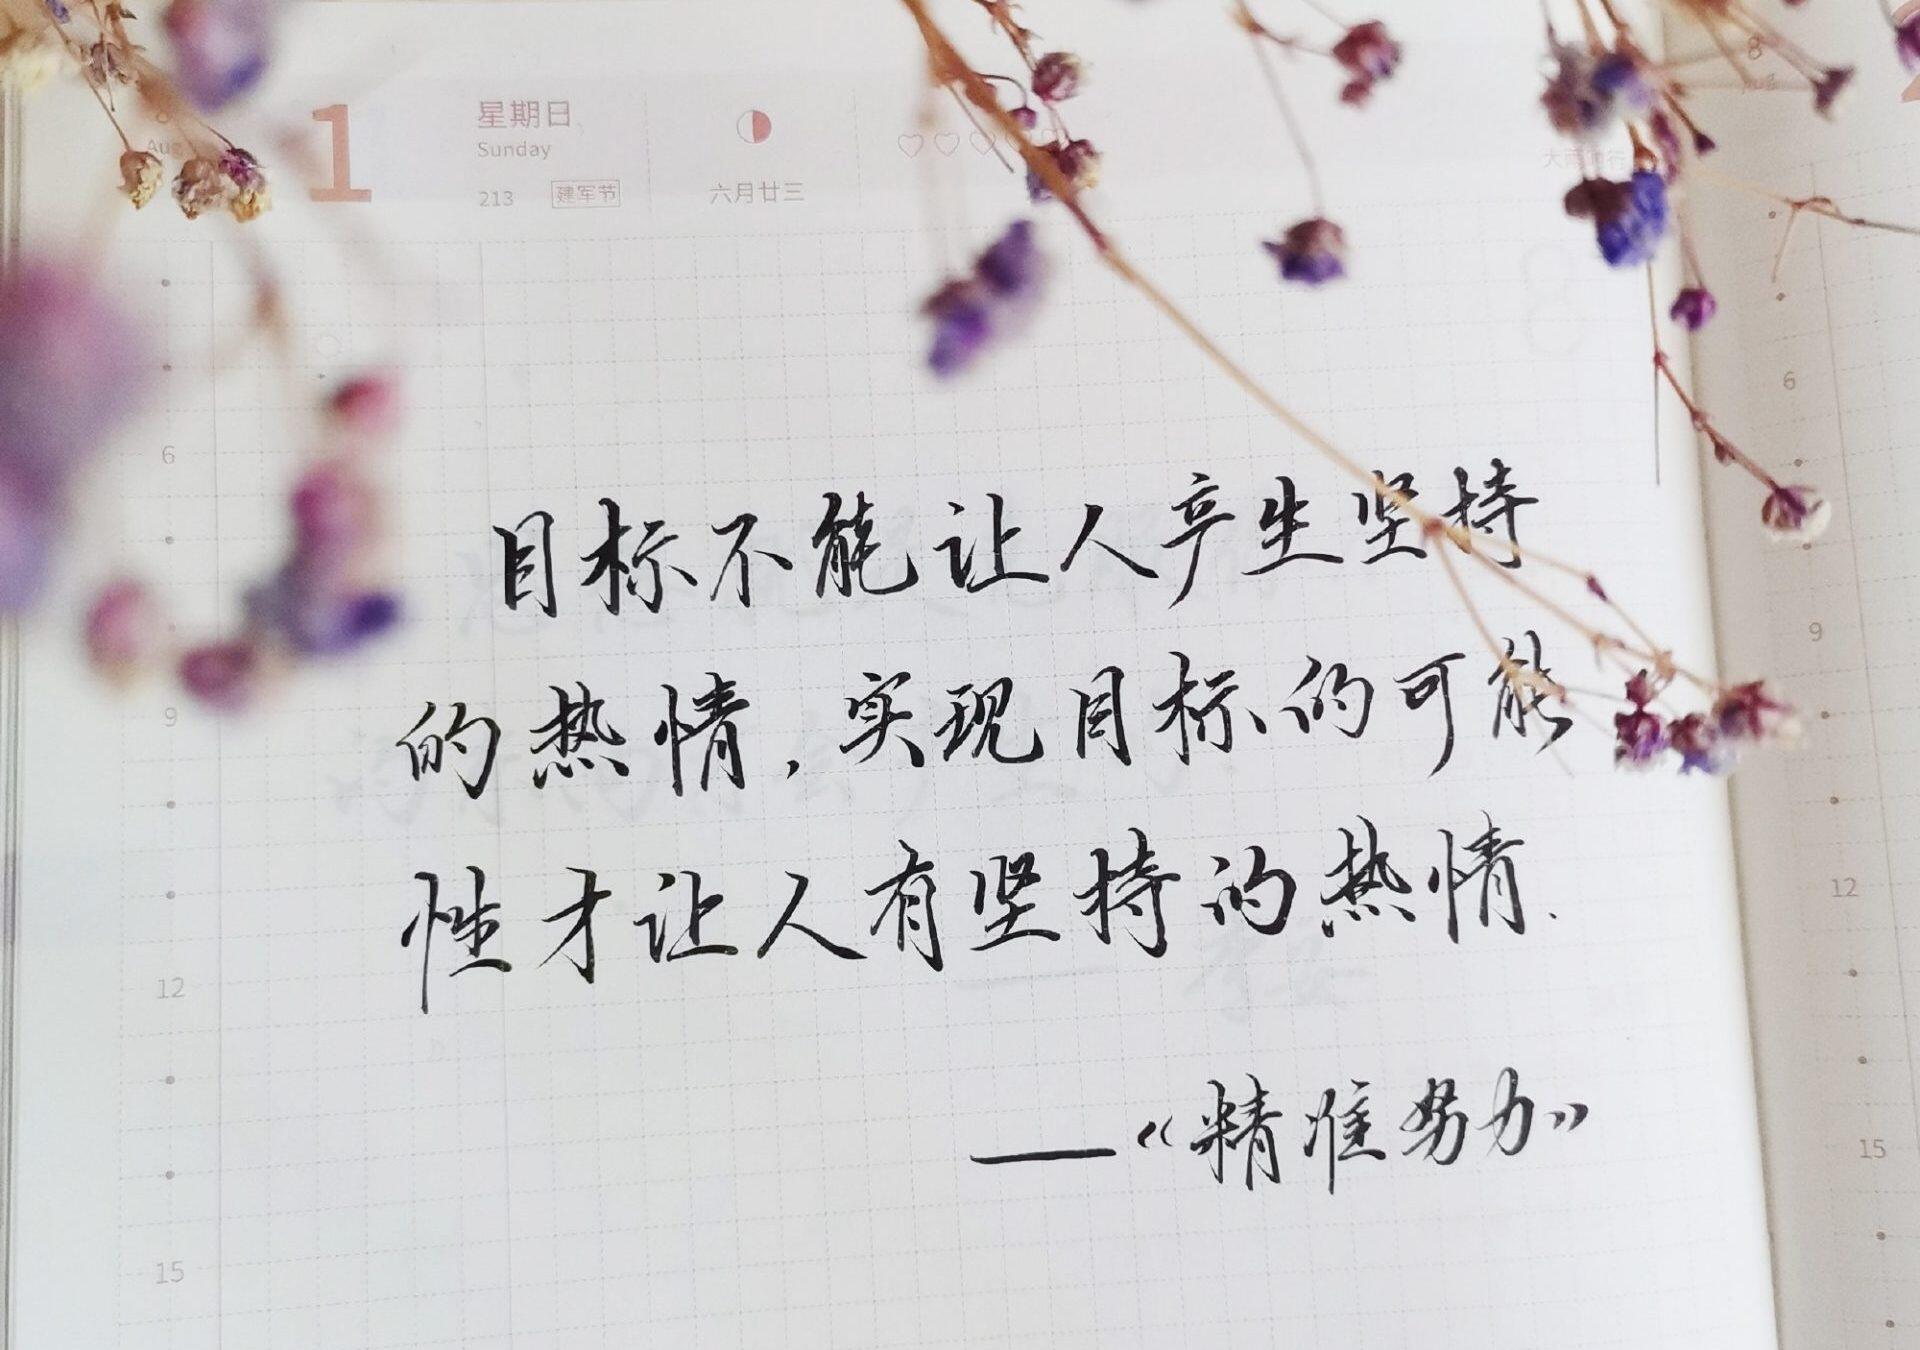 8
Aug
1
星期日
Sunday
213 建军节
六月廿三
目标不能让人产生坚持
的热情，实现目标的可能
性才让人有坚持的热情.
——《精准努力》
6
9
12
15
8
Aug
6
9
12
15